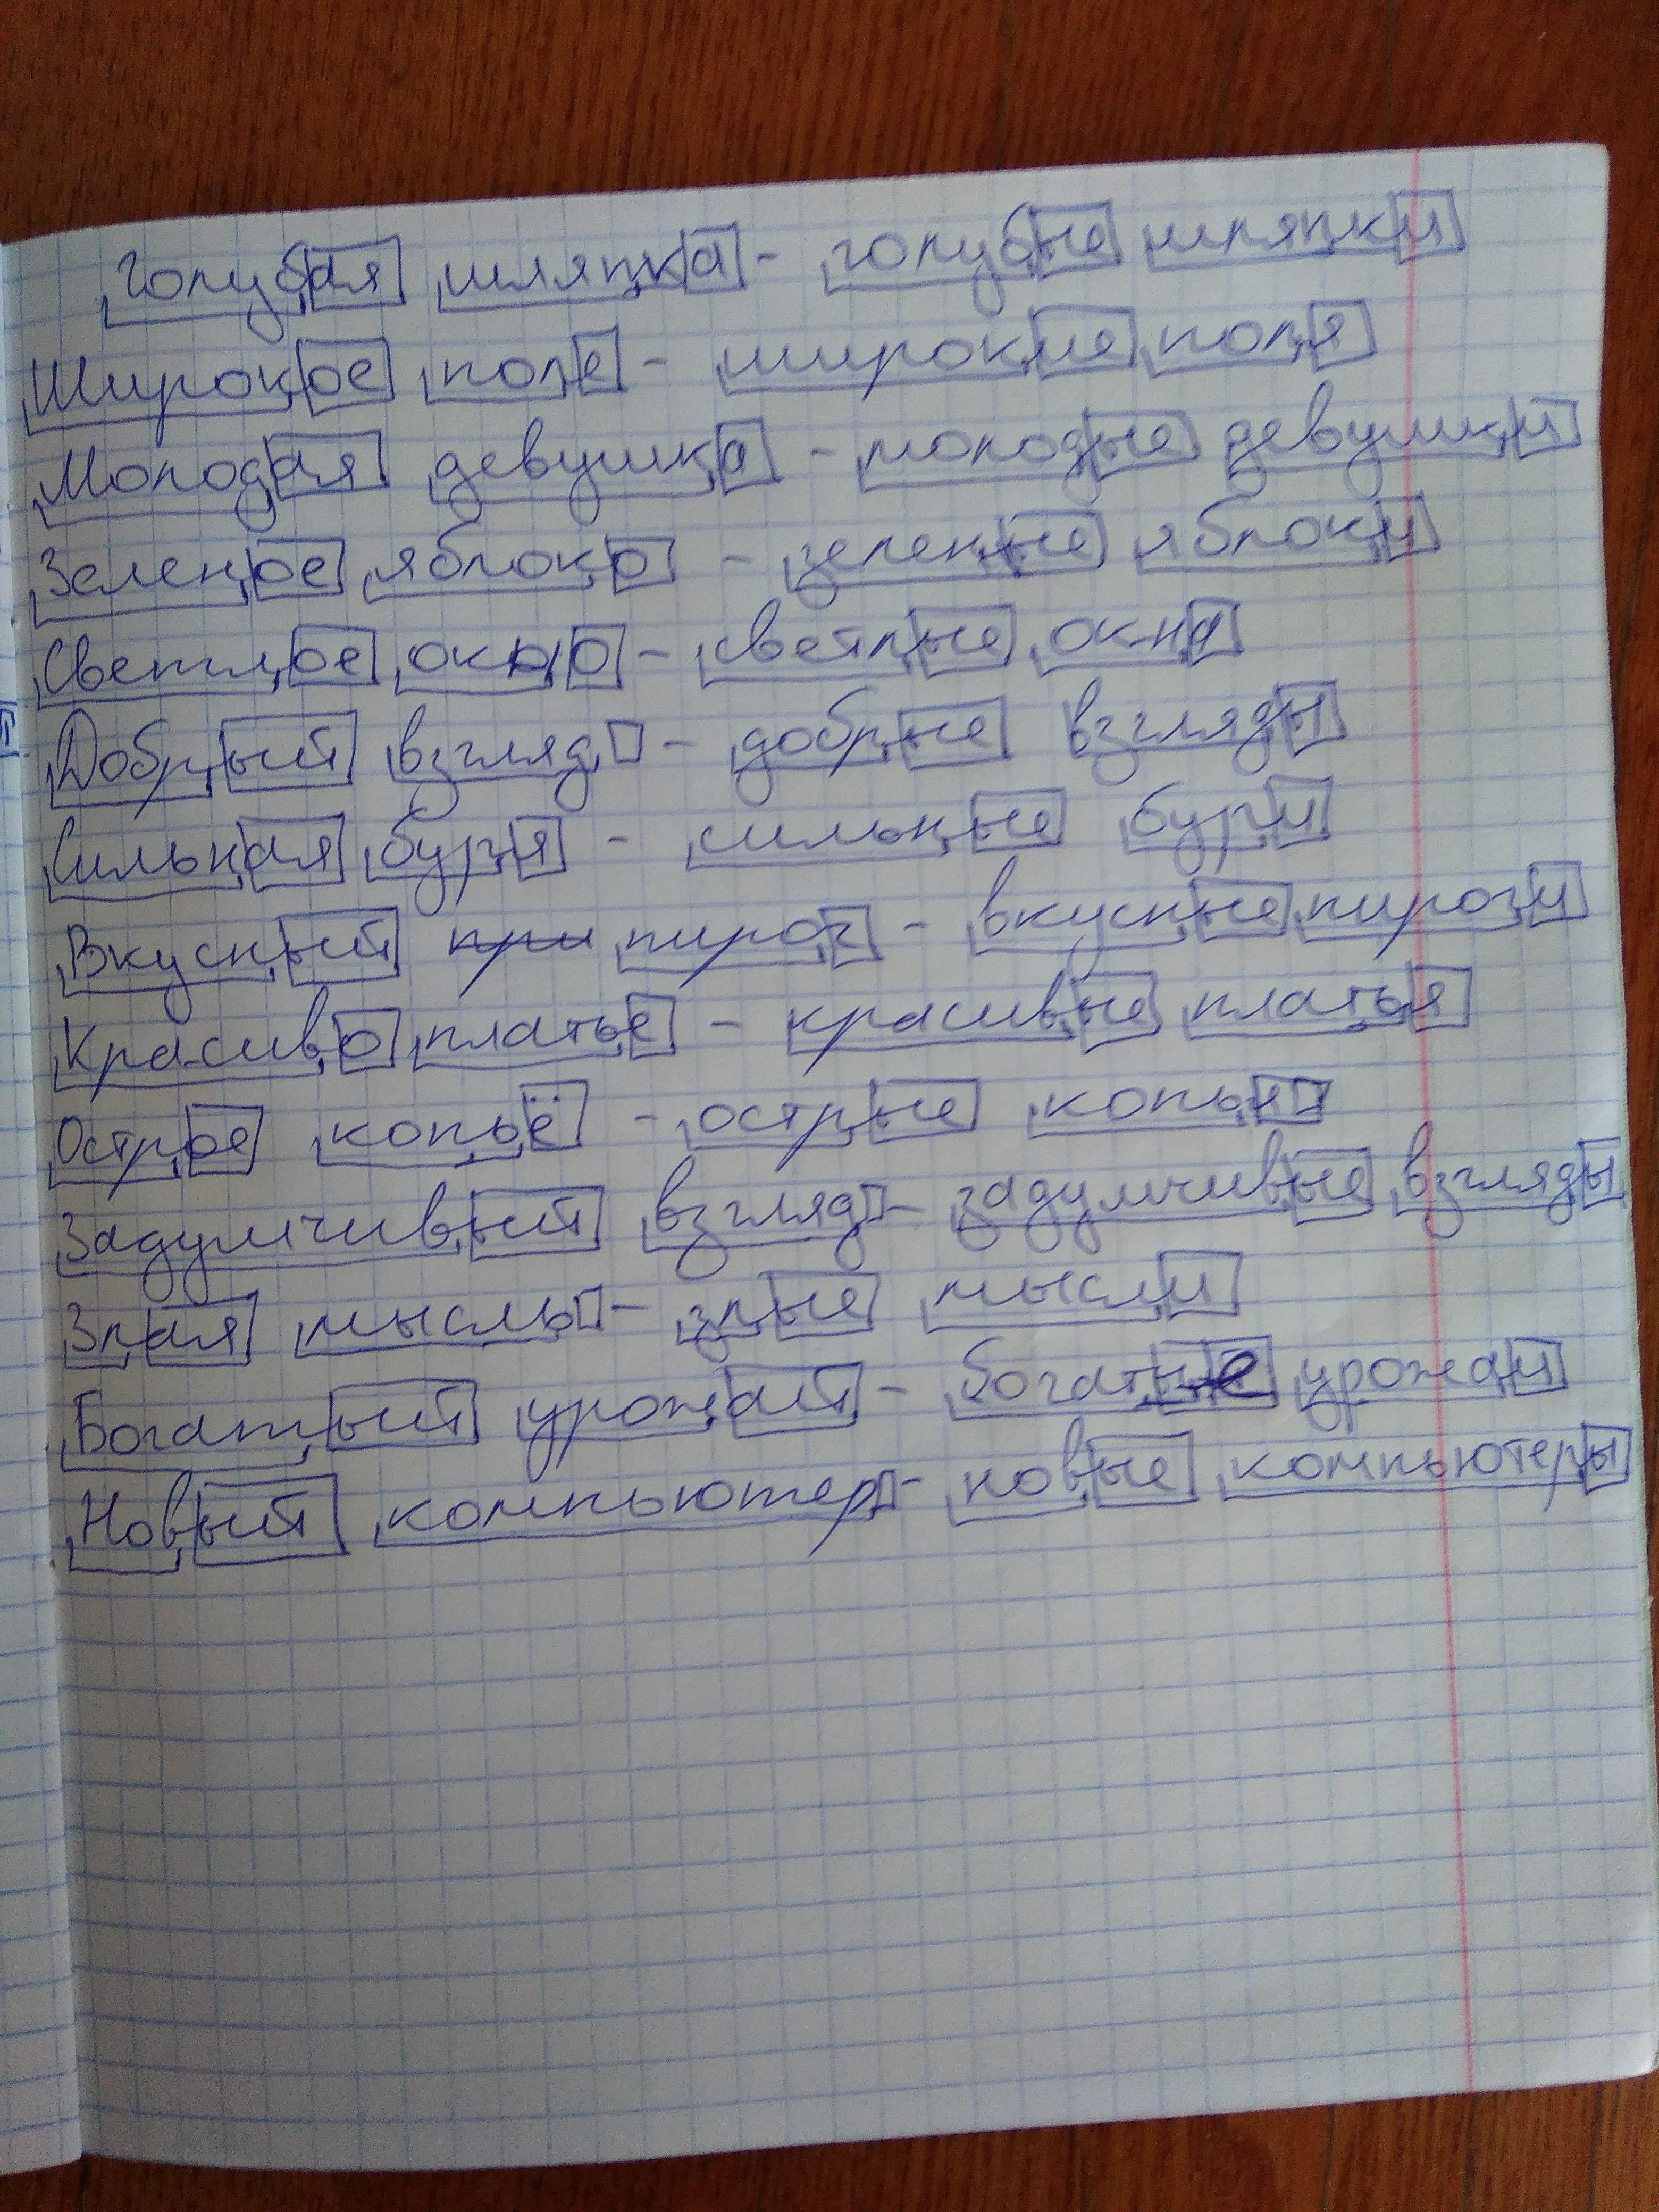 Голубая шляпка - голубые шляпки
Широкое поле - широкие поля
Молодая девушка - молодые девушки
Зеленое яблоко - зеленые яблоки
Светлое окно - светлые окна
Добрый взгляд - добрые взгляды
Сильная буря - сильные бури
Вкусный при пирог - вкусные пироги
Красиво платье - красивые платья
Острое копьё - острые копья
Задумчивый взгляд - задумчивые взгляды
Злая мысль - злые мысли
Богатый урожай - богатые урожаи
Новый компьютер - новые компьютеры